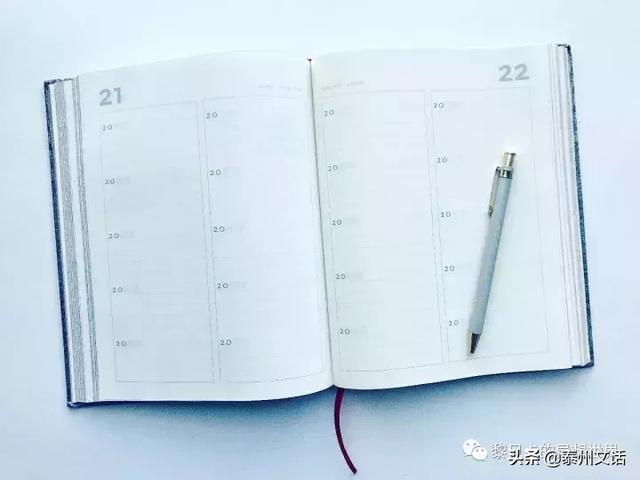 21
20 20
20 20
20 20
20 20
20 20
22
20 20
20 20
20 20
20 20
20 20
黎贝卡的异想世界
头条 @泰州文话